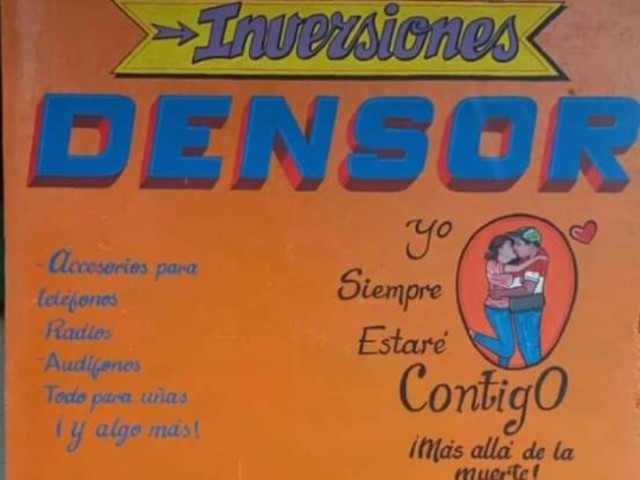 Inversiones
DENSOR
- Accesorios para
teléfonos
- Radios
- Audífonos
Todo para uñas
¡y algo más!
Yo
Siempre
Estaré
Contigo
¡Más allá de la
muerte!